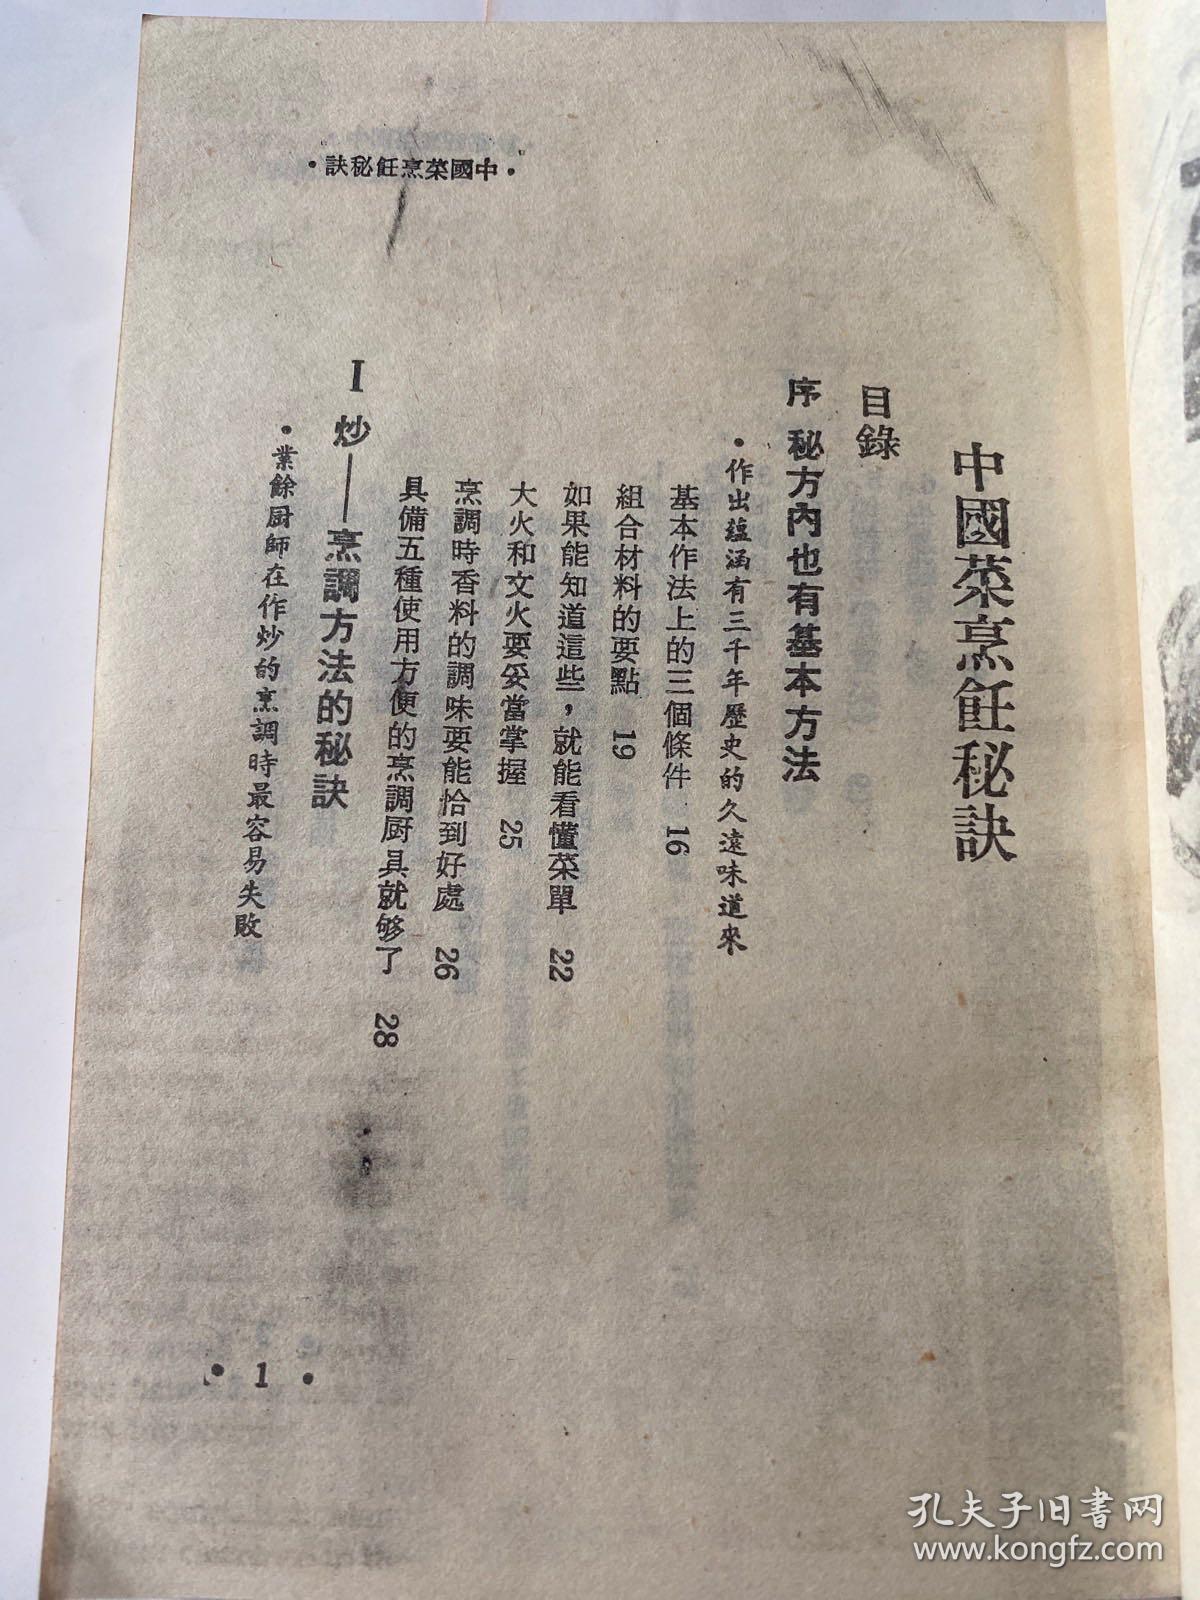 ·中國菜烹飪秘訣·
中國菜烹飪秘訣
目錄
序 秘方內也有基本方法
·作出蘊涵有三千年歷史的久遠味道來
基本作法上的三個條件 16
組合材料的要點 19
如果能知道這些，就能看懂菜單 22
大火和文火要妥當掌握 25
烹調時香料的調味要能恰到好處 26
具備五種使用方便的烹調厨具就够了 28
I 炒——烹調方法的秘訣
·業餘厨師在作炒的烹調時最容易失敗
·1·
孔夫子旧书网
www.kongfz.com